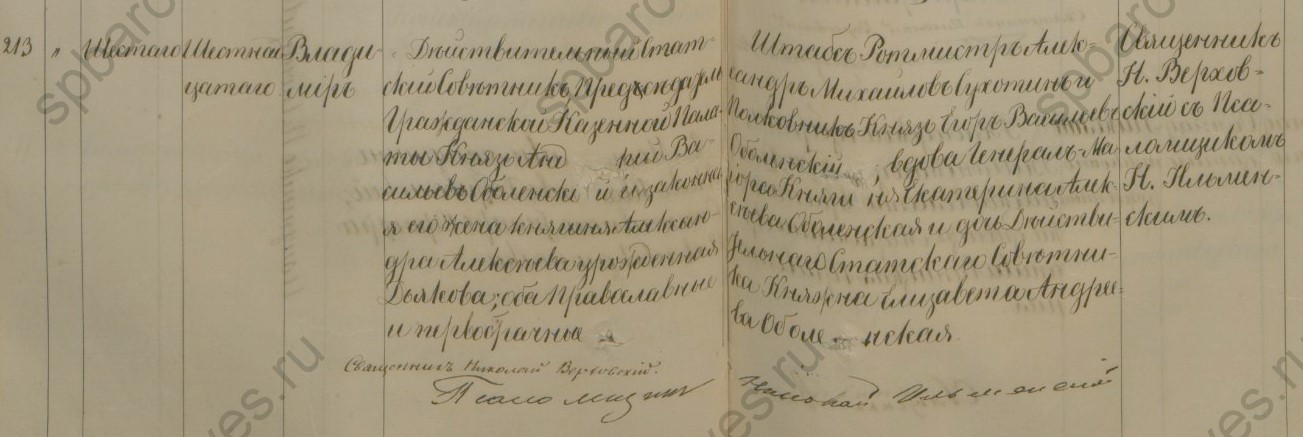 213 " Шестаго Шестнад-
цатаго Влади-
мiръ
Дѣйствительный Стат-
скiй Совѣтникъ, Предсѣдатель
Гражданской Казенной Пала-
ты Князь Анд рей Ва-
сильевъ Оболенскi й и законна-
я его жена княгиня Алексан-
дра Алексѣева урожденная
Дьякова; оба Православные
и первобрачные
Штабсъ Ротмистръ Алек-
сандръ Михайловъ Сухотинъ и
Полковникъ Князь Егоръ Васильевъ
Оболенскiй ; вдова Генералъ-Ма-
iора Княги ня Екатерина Алек-
сѣева Оболенская и дочь Дѣйстви-
тельнаго Статскаго Совѣтни-
ка Княжна Елизавета Андрее-
ва Оболе нская
Священникъ
Н. Верхов-
скiй съ Пса-
ломщикомъ
Н. Ильмен-
скимъ.
Священникъ Николай Верховскiй.
Псаломщикъ Николай Ильменскiй
spbarchives.ru